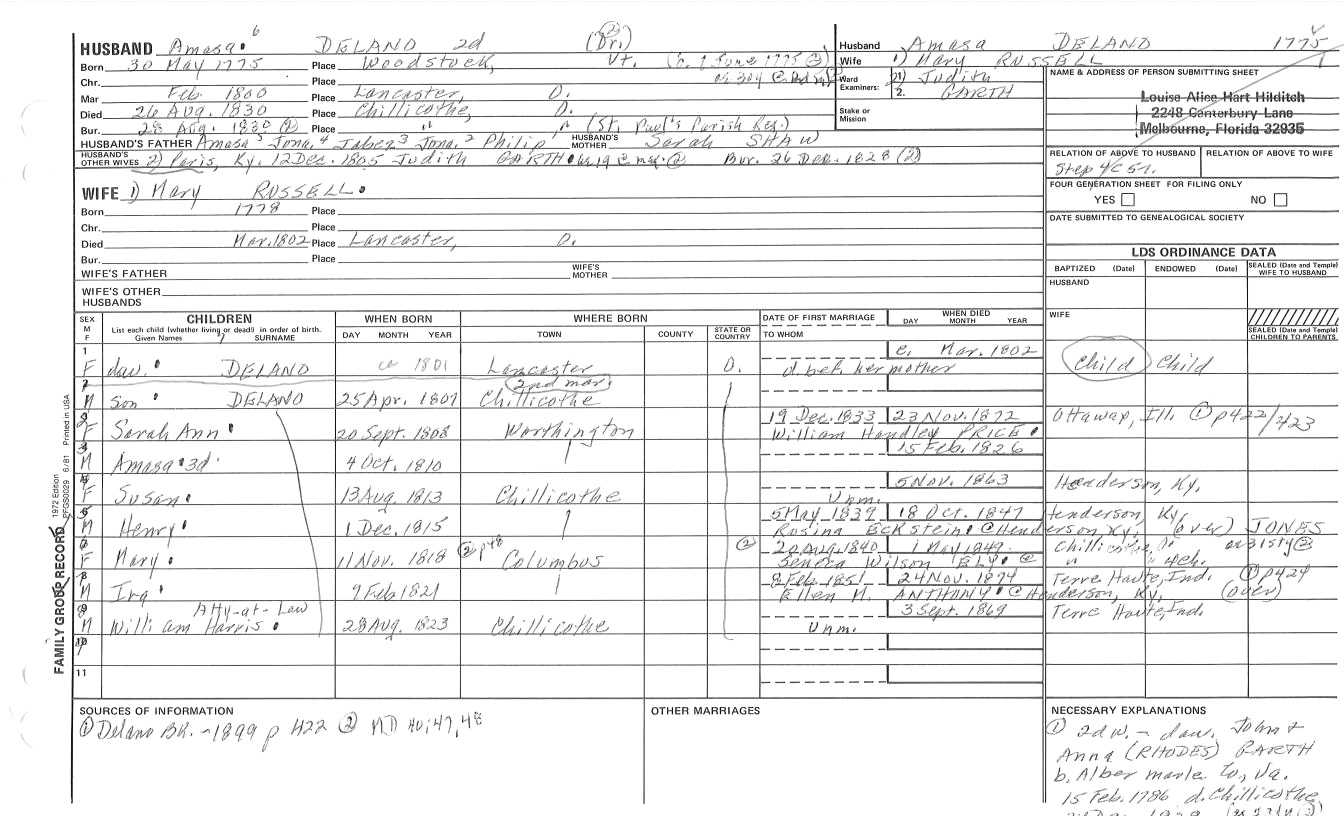 HUSBAND Amasa 6 DELANO 2d (Dr.) (2)
Born 30 May 1775 Place Woodstock, Vt. (c. 1 June 1775 (3)
Chr. Place or 30
Mar Feb 1800 Place Lancaster, O.
Died 26 Aug. 1830 Place Chillicothe, O.
Bur. 28 Aug. 1830 (2) Place " " (St. Paul's Parish Reg.)
HUSBAND'S FATHER Amasa 5 Jona. 4 Jabez 3 Jona. 2 Philip HUSBAND'S MOTHER Sarah SHAW
HUSBAND'S OTHER WIVES 2) Paris, Ky. 12 Dec. 1805 Judith GARTH Bur. 26 Dec. 1828 (2)
WIFE 1) Mary RUSSELL
Born 1778 Place
Chr. Place
Died Mar. 1802 Place Lancaster, O.
Bur. Place
WIFE'S FATHER WIFE'S MOTHER
WIFE'S OTHER HUSBANDS
Husband Amasa DELANO 1775
Wife 1) Mary RUSSELL
Ward Examiners: 1. 2) Judith
2. GARTH
Stake or Mission
NAME & ADDRESS OF PERSON SUBMITTING SHEET
Louise Alice Hart Hilditch
2248 Canterbury Lane
Melbourne, Florida 32935
RELATION OF ABOVE TO HUSBAND RELATION OF ABOVE TO WIFE
Step 4C 5r.
FOUR GENERATION SHEET FOR FILING ONLY
YES NO
DATE SUBMITTED TO GENEALOGICAL SOCIETY
LDS ORDINANCE DATA
BAPTIZED (Date) ENDOWED (Date) SEALED (Date and Temple) WIFE TO HUSBAND
HUSBAND
WIFE
SEALED (Date and Temple) CHILDREN TO PARENTS
SEX M F CHILDREN WHEN BORN WHERE BORN DATE OF FIRST MARRIAGE WHEN DIED
List each child (whether living or dead) in order of birth. Given Names SURNAME DAY MONTH YEAR TOWN COUNTY STATE OR COUNTRY TO WHOM DAY MONTH YEAR
1 c. Mar. 1802
F dau. DELANO ca 1801 Lancaster O. d. bef. her mother Child Child
2nd mar.
M Son DELANO 25 Apr. 1807 Chillicothe
19 Dec. 1833 23 Nov. 1872 Ottawa, Ill. (1) p422/423
F Sarah Ann 20 Sept. 1808 Worthington William Handley PRICE
15 Feb. 1826
M Amasa 3d 4 Oct. 1810
5 Nov. 1863 Henderson, Ky.
F Susan 13 Aug. 1813 Chillicothe Unm.
5 May 1839 18 Oct. 1847 Henderson, Ky
M Henry 1 Dec. 1815 Rosina ECKSTEIN @ Henderson, Ky. (over) JONES
20 Aug. 1840 1 May 1849 Chillicothe, O. or 31sty (2)
F Mary 11 Nov. 1818 (2) p48 Columbus (2) Seneca Wilson ELY (2) " 4ch.
8 Feb. 1851 24 Nov. 1874 Terre Haute, Ind. (1) p424
M Ira 9 Feb 1821 Ellen M. ANTHONY @ Henderson, Ky. (over)
Atty-at-Law 3 Sept. 1869 Terre Haute, Ind.
M William Harris 28 Aug. 1823 Chillicothe Unm.
10
11
FAMILY GROUP RECORD 1972 Edition PFGS0029 6/81 Printed in USA
SOURCES OF INFORMATION
(1) Delano Bk. - 1899 p 422 (2) MD 40; 47, 48
OTHER MARRIAGES
NECESSARY EXPLANATIONS
(1) 2d w. - dau. John &
Anna (RHODES) GARTH
b. Albermarle Co., Va.
15 Feb. 1786 d. Chillicothe,